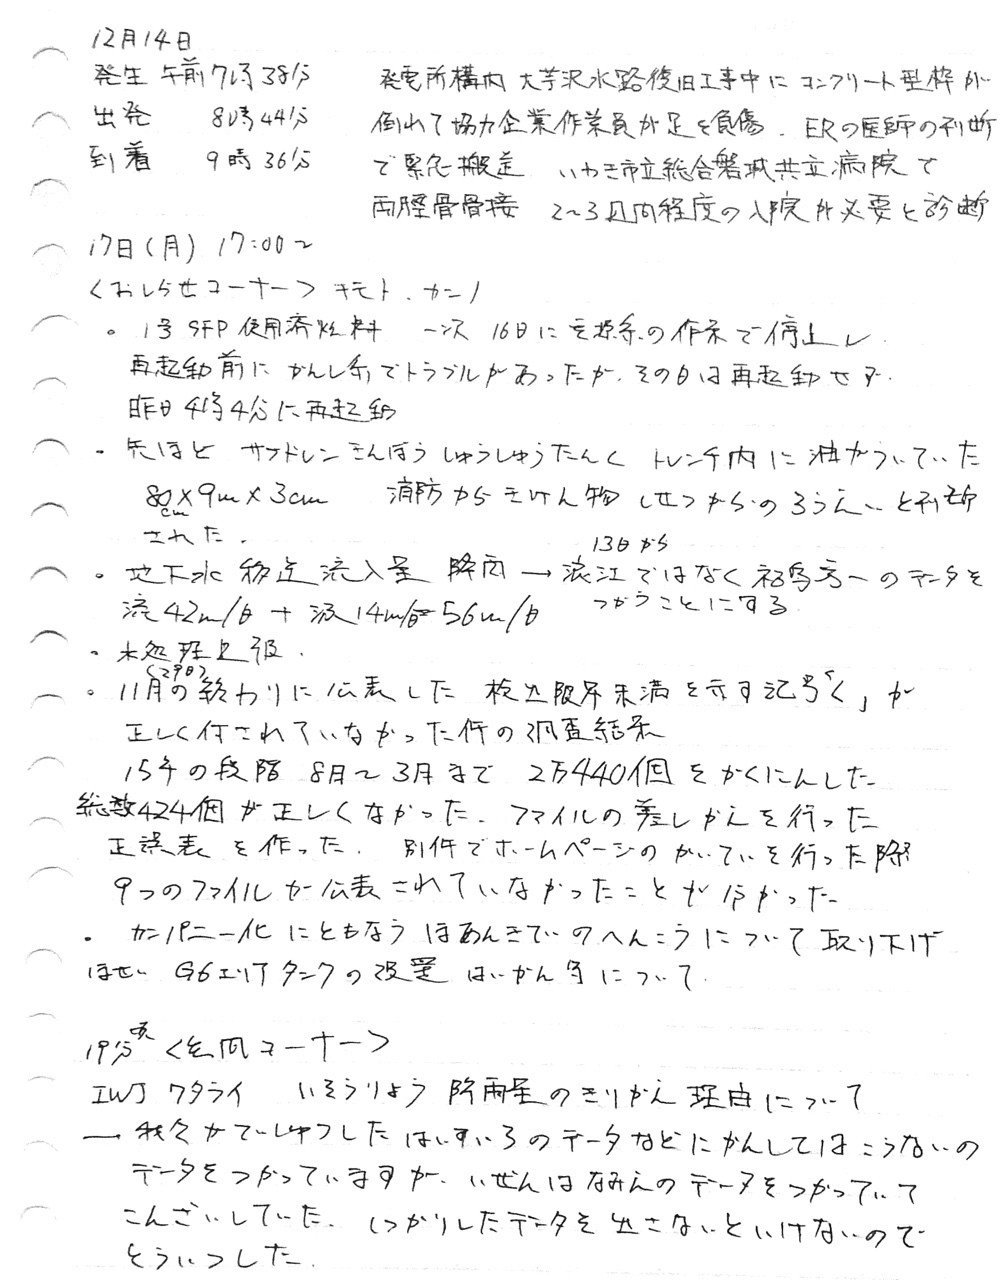 12月14日
発生 午前7時38分 発電所構内 大芋沢水路復旧工事中に コンクリート型枠が
出発 8時44分 倒れて協力企業作業員が足を負傷. ERの医師の判断
到着 9時36分 で緊急搬送 いわき市立総合磐城共立病院で
両脛骨骨接 2〜3週間程度の入院が必要と診断
17日(月) 17:00〜
<おしらせコーナー> キモト. カンノ
・1号SFP 使用済燃料 一次 16日に 系の作 で停止し
再起動前に かんし系でトラブルがあったが. その日は再起動せず.
昨日4時4分に再起動
・先ほど サブドレン しゅうしゅうたんく トレンチ内に 油がういていた
80cm×9m×3cm 消防から きけん物 しせつからのろうえいと判断
された.
・地下水 移送 流入量 降雨 → 浪江ではなく 福島 一のデータを
13日から
つかうことにする
流42m/日 + 汲14m/日=56m/日
・未処理
・11月の終わりに公表した 検出限界未満を示す記号「<」が
(29日)
正しく付されていなかった件の調査結果
15年の段階 8月〜3月まで 2万440個 をかくにんした
総数424個が正しくなかった. ファイルの差しかえを行った
正誤表 を作った. 別件でホームページのかいていを行った際
9つのファイルが公表されていなかったことが分かった
・カンパニー化 にともなう ほあんきていのへんこうについて 取り下げ
ほせい G6エリアタンクの設置 はいかん等について.
19分 <質問コーナー>
IWJ ワタライ いそうりょう 降雨量のきりかえ 理由について
→ 我々がていしゅつした はいすいろのデータなどにかんしては こうないの
データをつかっていますが. いぜんはなみえのデータをつかっていて
こんざいしていた. しっかりしたデータを出さないといけないので
とういつした.